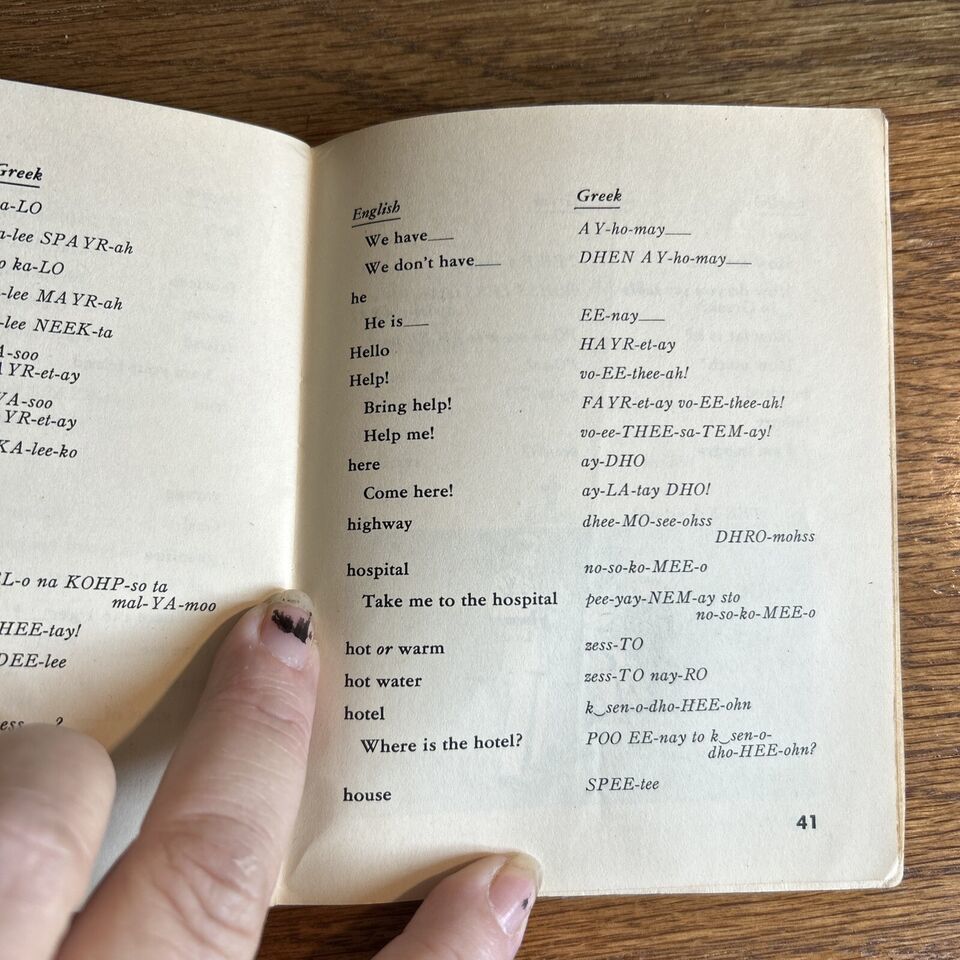 Greek
a-LO
a-lee SPAYR-ah
o ka-LO
-lee MAYR-ah
-lee NEEK-ta
A-soo
AYR-et-ay
YA-soo
YR-et-ay
KA-lee-ko
EL-o na KOHP-so ta
mal-YA-moo
HEE-tay!
DEE-lee
?
English Greek
We have___ AY-ho-may___
We don't have___ DHEN AY-ho-may___
he
He is___ EE-nay___
Hello HAYR-et-ay
Help! vo-EE-thee-ah!
Bring help! FAYR-et-ay vo-EE-thee-ah!
Help me! vo-ee-THEE-sa-TEM-ay!
here ay-DHO
Come here! ay-LA-tay DHO!
highway dhee-MO-see-ohss
DHRO-mohss
hospital no-so-ko-MEE-o
Take me to the hospital pee-yay-NEM-ay sto
no-so-ko-MEE-o
hot or warm zess-TO
hot water zess-TO nay-RO
hotel k‿sen-o-dho-HEE-ohn
Where is the hotel? POO EE-nay to k‿sen-o-
dho-HEE-ohn?
house SPEE-tee
41